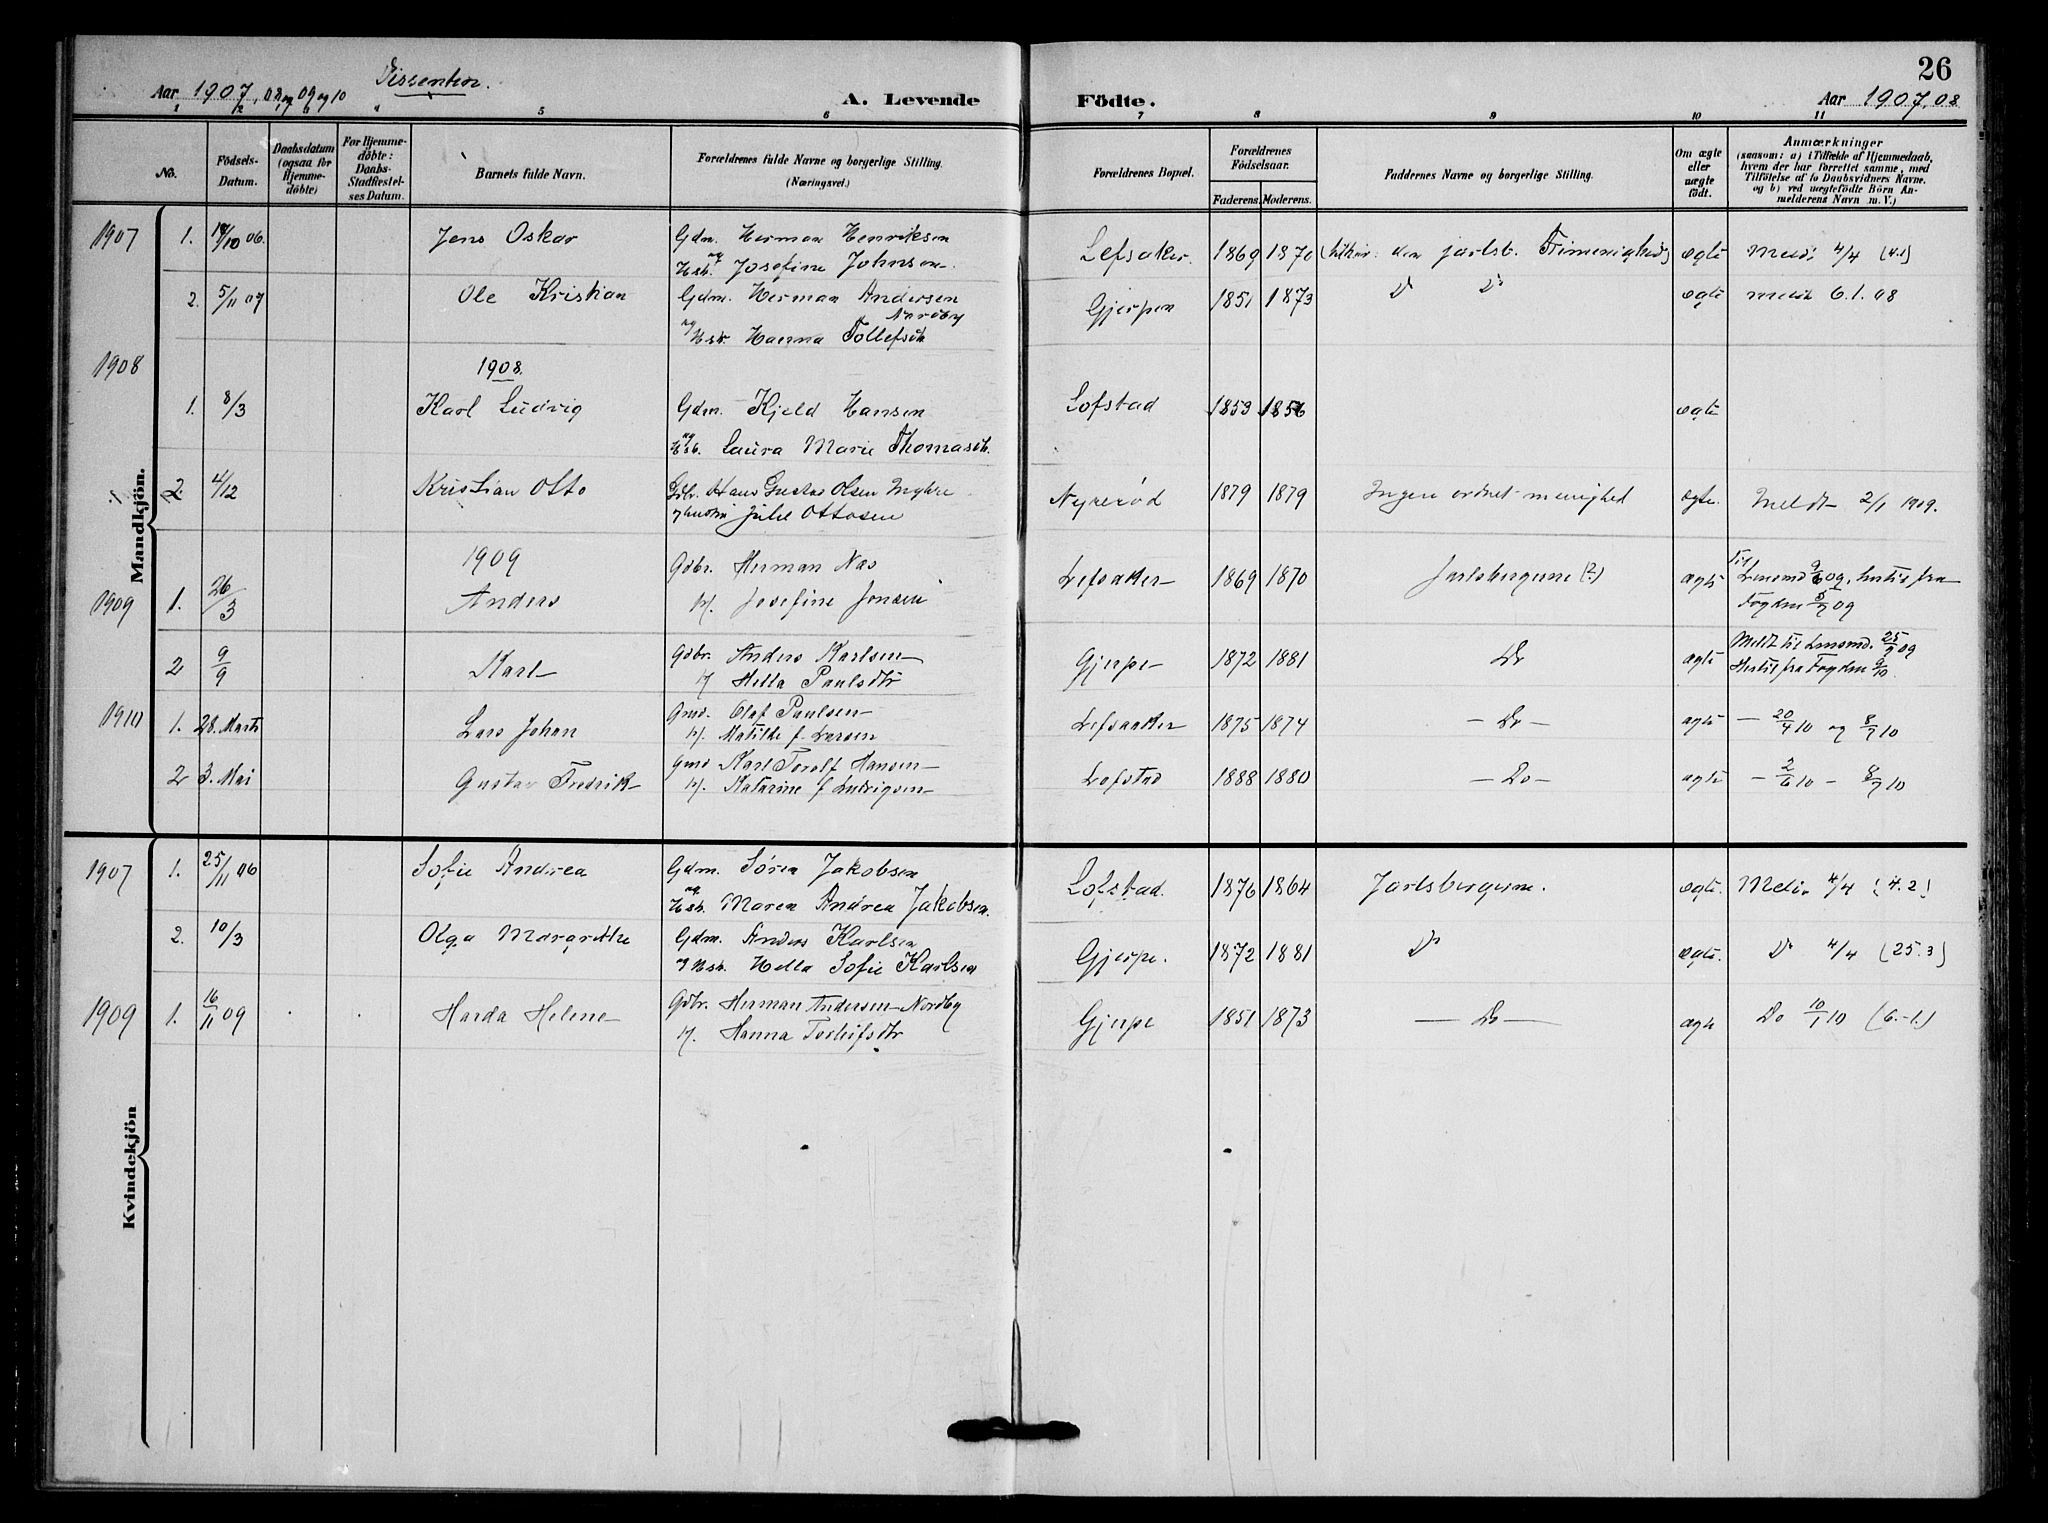 26
Aar 1907, 08, og 09 og 10
Dissentere.
A. Levende
Födte.
Aar 1907, 08
1 2 3 4 5 6 7 8 9 10 11
No.
Födsels-
Datum.
Daabsdatum
(ogsaa for
Hjemme-
döbte)
For Hjemme-
döbte:
Daabs-
Stadfæstel-
ses Datum.
Barnets fulde Navn.
Forældrenes fulde Navne og borgerlige Stilling.
(Næringsvei.)
Forældrenes Bopæl.
Forældrenes
Födselsaar.
Faderens.
Moderens.
Faddernes Navne og borgerlige Stilling.
Om ægte
eller
uægte
födt.
Anmærkninger
(saasom: a) i Tilfælde af Hjemmedaab,
hvem der har forrettet samme, med
Tilföielse af to Daabsvidners Navne,
og b) ved uægtefödte Börn An-
melderens Navn m. V.)
Mandkjön.
1907 1. /10 06. Jens Oskar Gdm. Herman Henriksen
og Hstr. Josefine Johnsen Lefsaker. 1869 1870 den jarlsb. Frimenighed) ægte Meldt 4/4 (4.1)
2. 5/11 07 Ole Kristian Gdm. Herman Andersen
Nordby
og Hstr. Hanna Tollefsdtr. Gjerpen 1851 1873 Do Do ægte meldt 6.1.08
1908
1908.
1. 8/3 Karl Ludvig Gdm. Kjeld Hansen
og Hstr. Laura Marie Thomasdtr. Lofstad 1853 1856 ægte
2. 4/12 Kristian Otto Gbr. Hans Gustav Olsen Myhre
og hustru Julie Ottosen Nyrerød 1879 1879 Ingen ordnet menighed ægte. Meldt 2/1 1909.
1909
1909 1. 26/3 Anders Gdbr. Herman Næs
H. Josefine Jensen Lefsaker 1869 1870 Jarlsbergerne (?) ægte Til
Lensmd 9/6 09, hertil fra
Fogden 09
2 9/9 Karl Gdbr. Anders Karlsen
H. Hella Paulsdtr Gjerpe 1872 1881 Do ægte Meldt til Lensmd. 25/9 09
Hertil fra Fogden 9/10.
1910 1. 28. Marts Lars Johan Gmd. Olaf Paulsen
H. Matilde f. Larsen Lefsaaker 1875 1874 — Do — ægte — 20/4 10 og 8/7 10
2 3. Mai Gustav Fredrik Gmd Karl Torolf Hansen
H. Katarine f. Ludvigsen Lofstad 1888 1880 — Do — ægte — 2/6 10 — 8/7 10
Kvindekjön
1907 1. 25/11 06 Sofie Andrea Gdm. Søren Jakobsen
og Hstr. Maren Andrea Jakobsen. Lofstad. 1876 1864 Jarlsbergerne. ægte. Meldt 4/4 (4.2)
2. 10/3 Olga Margrethe Gdm. Anders Karlsen
og Hstr. Hella Sofie Karlsen Gjerpe. 1872 1881 Do ægte. Do 4/4 (25.3)
1909 1. 16/11 09 Harda Helene Gdbr. Herman Andersen Nordby
H. Hanna Torleifsdtr Gjerpe 1851 1873 — Do — ægte Do 10/1 10 (6.-1.)